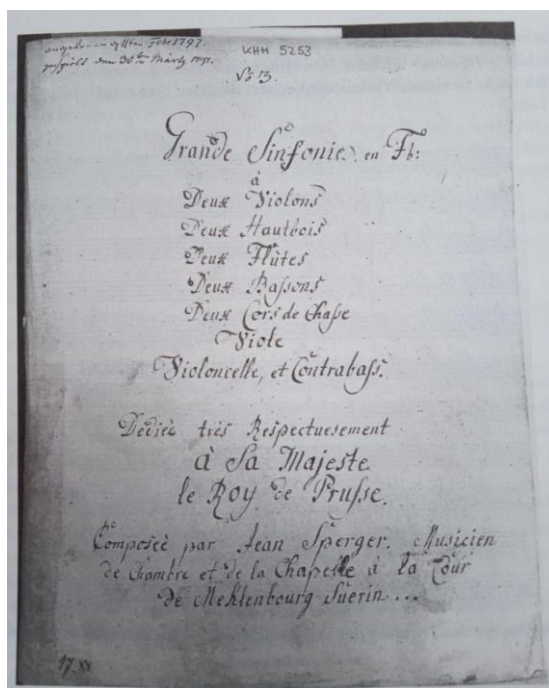 angefangen den 9ten Febr 1797.
gespielt den 30ten Märtz 1797.
KHM 5253
No 13.
Grande Sinfonie en Fb:
à
Deux Violons
Deux Hautbois
Deux Flûtes
Deux Baſsons
Deux Cors de Chaſse
Viole
Violoncelle, et Contrabaſs.
Dediéé très Respectuesement
à Sa Majeste
le Roy de Pruſse.
Composéé par Jean Sperger. Musicien
de Chambre et de la Chapelle à la Cour
de Meklenbourg Suerin ...